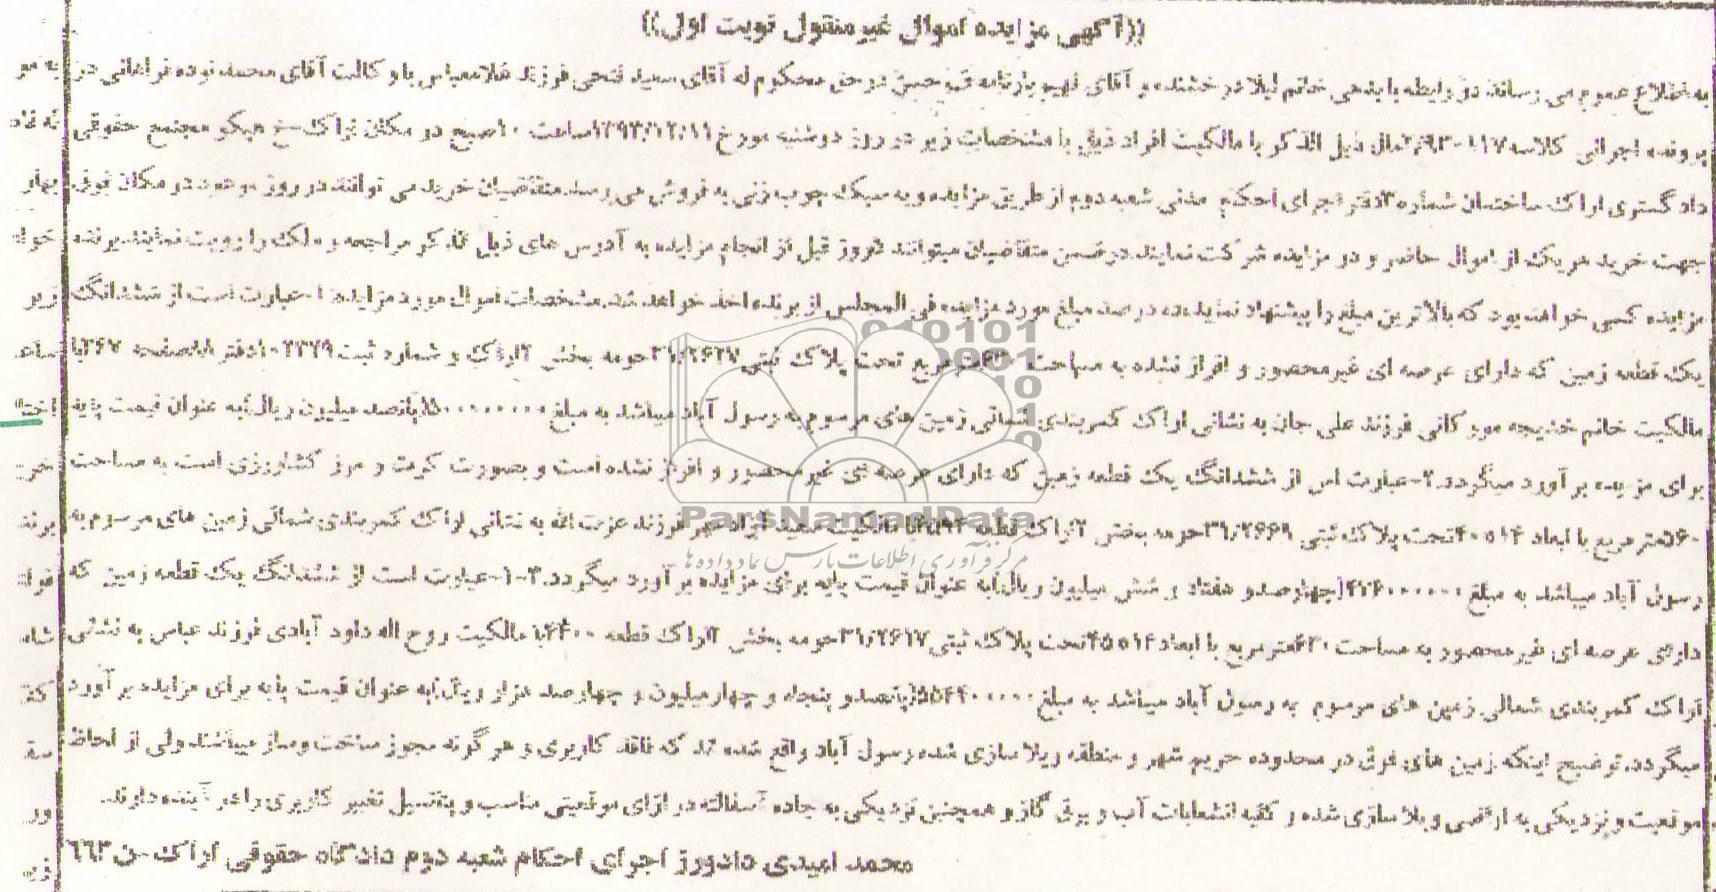 ((آگهی مزایده اموال غیرمنقول نوبت اول))
به اطلاع عموم می رساند در رابطه با بدهی خانم لیلا درخشنده و آقای فهیم در حق محکوم له آقای سعید فتحی فرزند غلامعباس با وکالت آقای محمد نوده فراهانی در
پرونده اجرائی کلاسه مال ذیل الذکر با مالکیت افراد ذیل با مشخصات زیر در روز دوشنبه مورخ ۱۳۹۳/۱۲/۱۱ ساعت ۱۰ صبح در مکان اراک-خ هپکو مجتمع حقوقی
دادگستری اراک ساختمان شماره ۳ دفتر اجرای احکام مدنی شعبه دوم از طریق مزایده و به سبک چوب زنی به فروش می رسد. متقاضیان خرید می توانند در روز موعود در مکان فوق
جهت خرید هر یک از اموال حاضر و در مزایده شرکت نمایند. در ضمن متقاضیان میتوانند ۵ روز قبل از انجام مزایده به آدرس های ذیل الذکر مراجعه و ملک را رویت نمایند. برنده
مزایده کسی خواهد بود که بالاترین مبلغ را پیشنهاد نماید. ده درصد مبلغ مورد مزایده فی المجلس از برنده اخذ خواهد شد. مشخصات اموال مورد مزایده: ۱-عبارت است از ششدانگ
یک قطعه زمین که دارای عرصه ای غیرمحصور و افراز نشده به مساحت مترمربع تحت پلاک ثبتی ۳۱/۲۶۲۷ حومه بخش ۲ اراک و شماره ثبت ۱۰۲۳۲۹ دفتر ۸۸ صفحه ۲۶۷ با
مالکیت خانم خدیجه فرزند علی جان به نشانی اراک کمربندی شمالی زمین های مرسوم به رسول آباد میباشد به مبلغ (پانصد میلیون ریال) به عنوان قیمت پایه
برای مزایده برآورد میگردد. ۲-عبارت اس از ششدانگ یک قطعه زمین که دارای عرصه ای غیر محصور و افراز نشده است و بصورت کرت و مرز کشاورزی است به مساحت
۵۶۰ متر مربع با ابعاد ۱۴ در ۴۰ تحت پلاک ثبتی ۳۱/۲۶۶۹ حومه بخش ۲ اراک قطعه با مالکیت فرزند عزت الله به نشانی اراک کمربندی شمالی زمین های مرسوم به
رسول آباد میباشد به مبلغ ۴۷۶۰۰۰۰۰۰ (چهارصدو هفتاد و شش میلیون ریال) به عنوان قیمت پایه برای مزایده برآورد میگردد. ۳-۱-عبارت است از ششدانگ یک قطعه زمین که
دارای عرصه ای غیرمحصور به مساحت ۶۳۰ متر مربع با ابعاد ۱۴ در ۴۵ تحت پلاک ثبتی ۳۱/۲۶۱۷ حومه بخش ۲ اراک قطعه با مالکیت روح اله داود آبادی فرزند عباس به نشانی
اراک کمربندی شمالی زمین های مرسوم به رسول آباد میباشد به مبلغ (پانصدو پنجاه و چهار میلیون و چهارصد هزار ریال) به عنوان قیمت پایه برای مزایده برآورد
میگردد. توضیح اینکه زمین های فوق در محدوده حریم شهر و منطقه ویلا سازی شده رسول آباد واقع شده اند که فاقد کاربری و هر گونه مجوز ساخت و ساز میباشند ولی از لحاظ
موقعیت و نزدیکی به اراضی ویلا سازی شده و کلیه انشعابات آب و برق گاز و همچنین نزدیکی به جاده آسفالته در ازای موقعیتی مناسب و پتانسیل تغییر کاربری را در آینده دارند.
محمد امیدی دادورز اجرای احکام شعبه دوم دادگاه حقوقی اراک-ن ۶۶۳
ParsNamadData
مرکز فرآوری اطلاعات پارس نماد داده ها